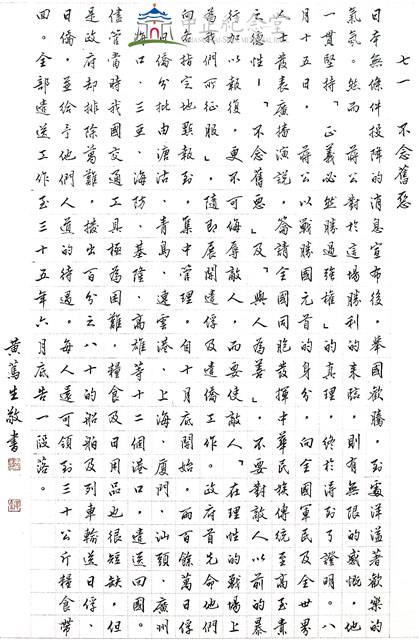 七一 不念舊惡
日本無條件投降的消息宣布後，舉國歡騰，到處洋溢著歡樂的
氣氛。然而 蔣公對於這場勝利的來臨，則有無限的感慨，他
一貫堅持「正義必然勝過強權」的真理，終於得到了證明。八
月十五日， 蔣公以戰勝國元首的身分，向全國軍民及全世界
人士發表廣播演說，籲請全國同胞發揮中華民族傳統至高至貴
之德性—「不念舊惡」及「與人為善」，不要對敵人以前的暴
行加以報復，更不可侮辱敵人，而要使敵人在理性的戰場上
為我們所征服。隨即展開遣俘及遣僑工作。政府首先命他們
向各指定地點報到，集中管理，自十月底開始，兩百餘萬日俘
日僑分批由塘沽、青島、連雲港、上海、廈門、汕頭、廣州
海口、三亞、海防、基隆、高雄等十二個港口遣送回國。
儘管當時我國交通工具極為困難，糧食及日用品也很短缺，但
是政府却排除萬難，撥出百分之八十的船舶及列車輪送日俘、
日僑，並給予他們人道的待遇，每人還可領到三十公斤糧食帶
回。全部遣送工作至三十五年六月底告一段落。
黃篤生敬書